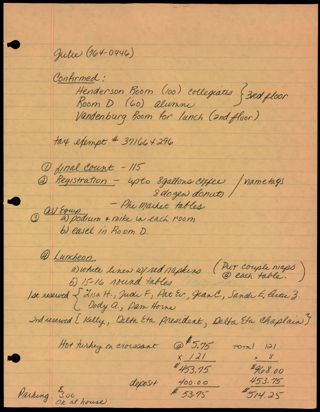 Julie (764-0446)
Confirmed:
Henderson Room (100) collegiates } 3rd floor
Room D (60) alumnae
Vandenburg Room for lunch (2nd floor)
tax exempt # 371664296
① final count - 115
② Registration - up to 8 gallons coffee / name tags
8 dozen donuts
- Phi Marker tables
③ AV Equip
a) podium & mike in each room
b) easel in Room D
④ Luncheon
a) white linen w/ red napkins (Put couple maps @ each table.)
b) 15-16 round tables
1st reserved { Lisa H., Judi F., Pat E., Jean C., Sandi E.,
Jody A., Pam Horne
2nd reserved [ Kelly, Delta Eta President, Delta Eta Chaplain ]
Hot turkey on croissant @ $5.75 Total 121
x 121 x 8
$453.75 $968.00
deposit 400.00 453.75
Parking: $2.00 $53.75 $514.25
at house